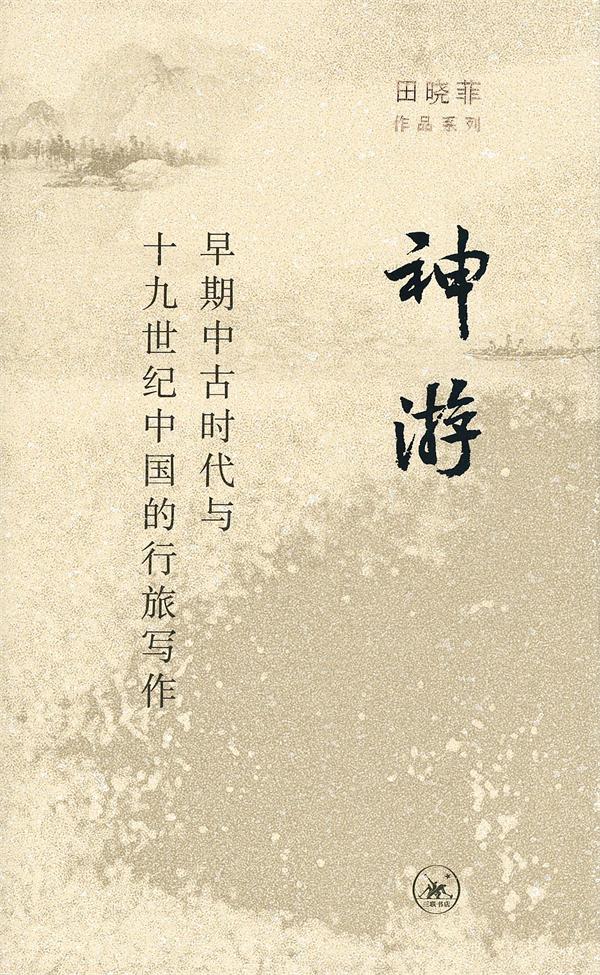 田晓菲
作品系列
神游
早期中古时代与
十九世纪中国的行旅写作
三联书店